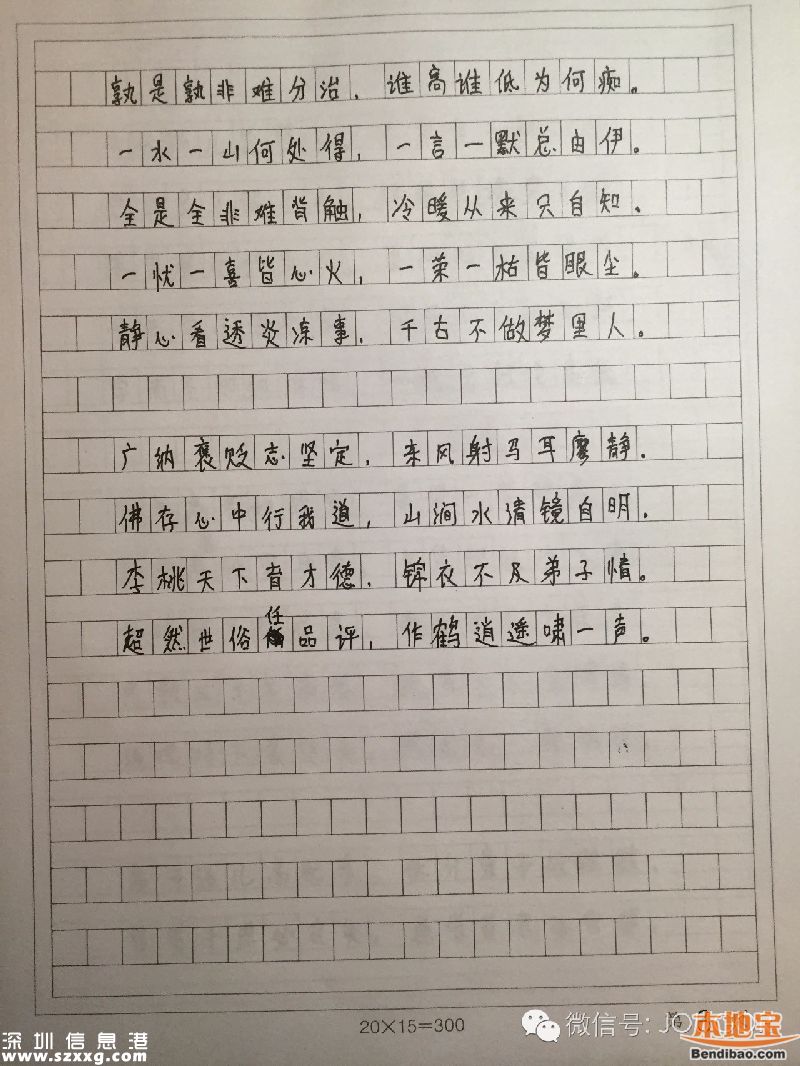 孰是孰非难分治，谁高谁低为何痴。
一水一山何处得，一言一默总由伊。
全是全非难背触，冷暖从来只自知。
一忧一喜皆心火，一荣一枯皆眼尘。
静心看透炎凉事，千古不做梦里人。
广纳褒贬志坚定，东风射马耳廖静。
佛存心中行我道，山涧水清镜自明。
李桃天下育才德，锦衣不及弟子情。
超然世俗任品评，作鹤逍遥啸一声。
20×15=300
微信号: JO
深圳信息港
www.szxxg.com
本地宝
Bendibao.com